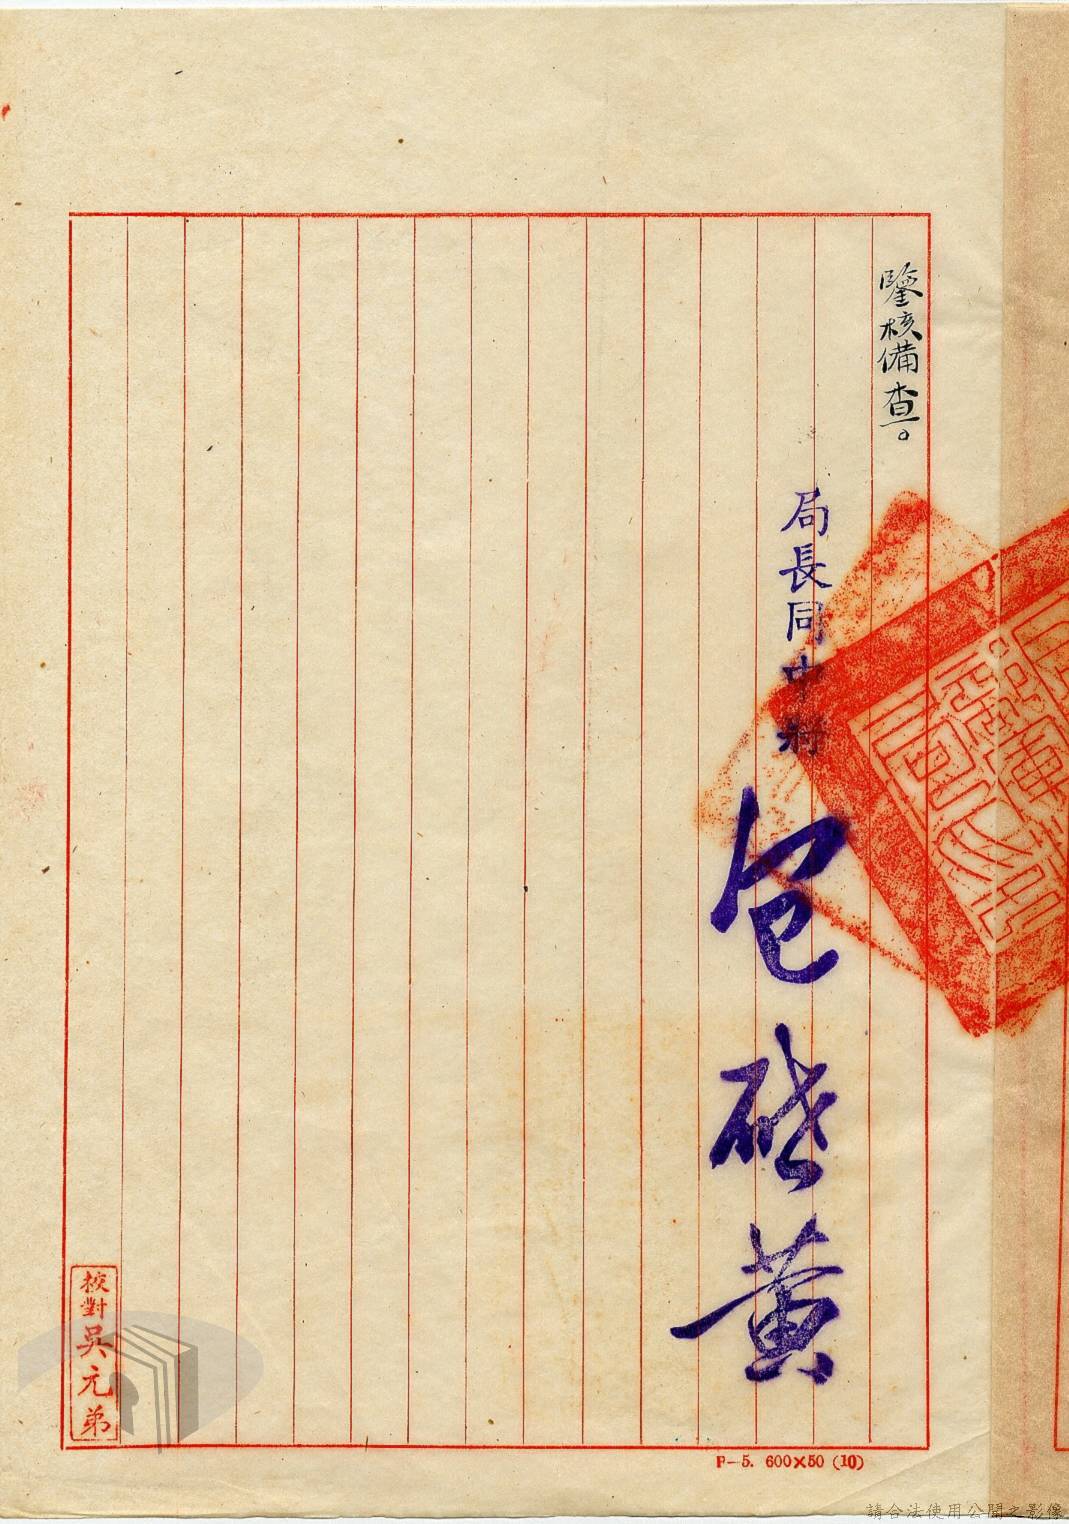 鑒核備查。
局長同中將
包啟黃
校對吳元弟
P-5. 600×50 (10)
請合法使用公開之影像